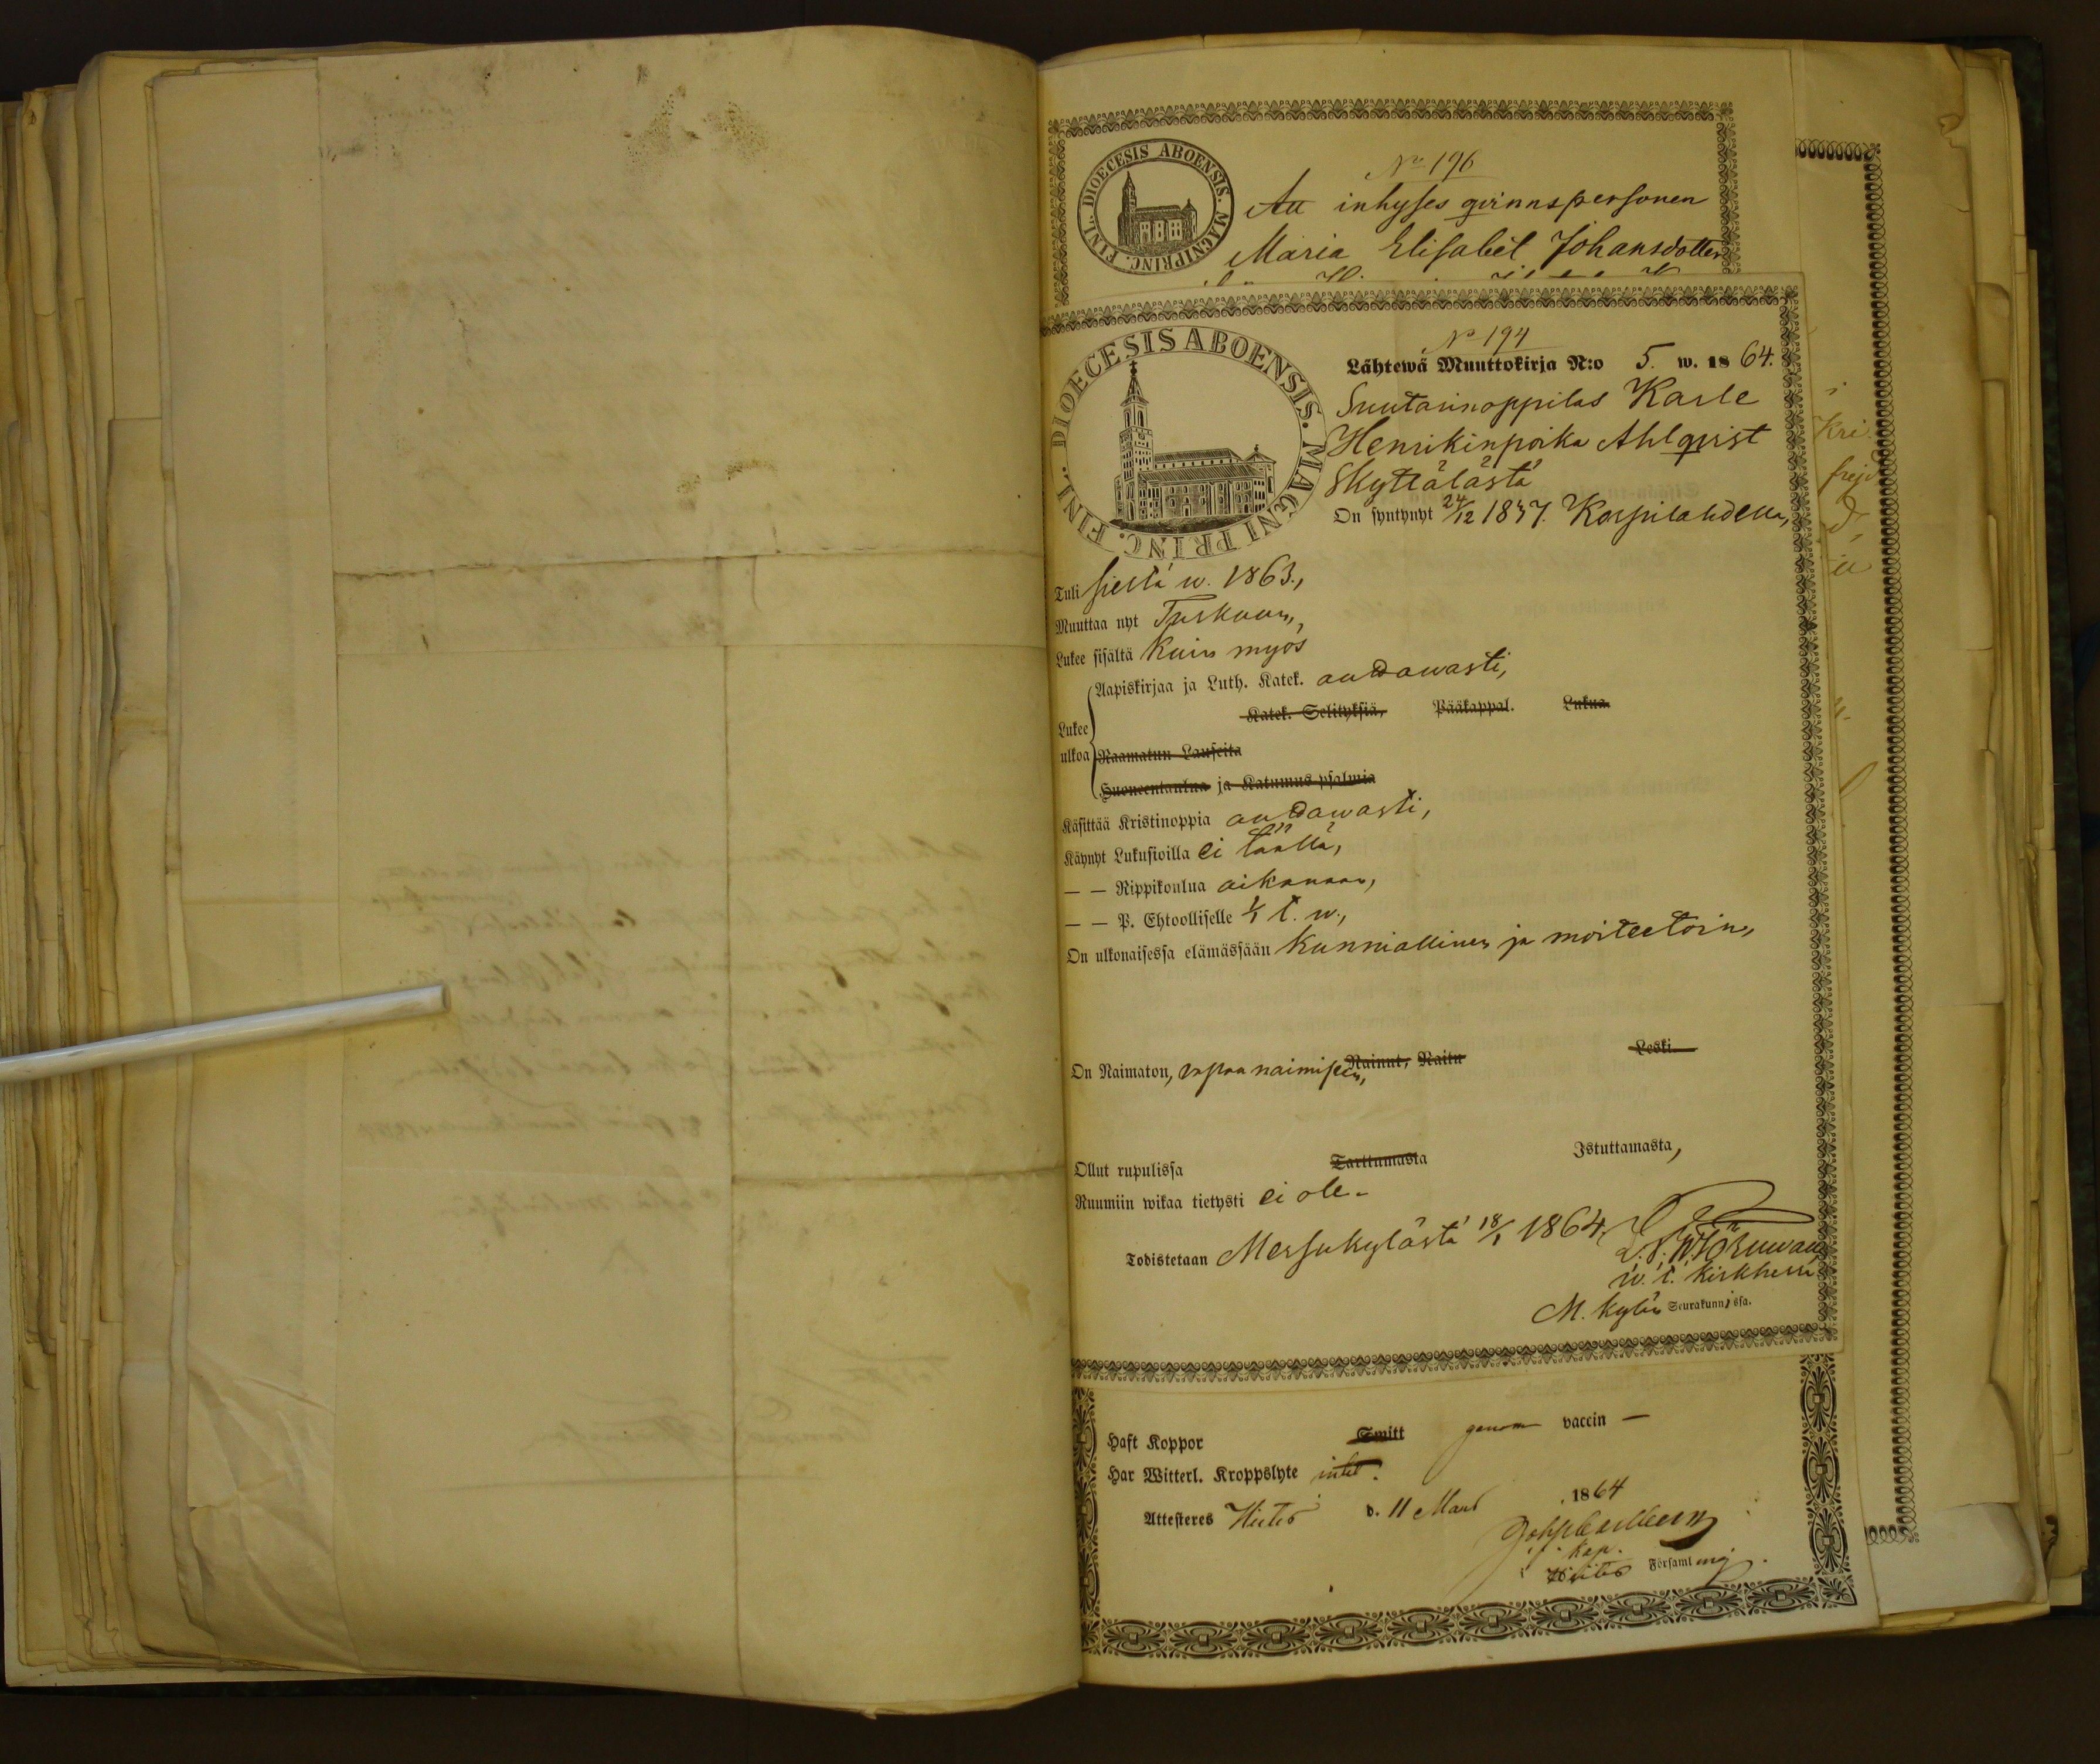 DIOECESIS ABOENSIS. MAGNI PRINC. FINL.
No 196
Att inhyses qvinnspersonen
Maria Elisabet Johansdotter
DIOECESIS ABOENSIS. MAGNI PRINC. FINL.
No 194
Lähtewä Muuttokirja N:o 5. w. 1864.
Suutarinoppilas Karle
Henrikinpoika Ahlqvist
Skyttälästä
On syntynyt 24/12 1837. Korpilahdella,
Tuli sieltä w. 1863.,
Muuttaa nyt Turkuun,
Lukee sisältä kuin myös
Aapiskirjaa ja Luth. Katek. auttawasti,
Katek. Selityksiä, Pääkappal. Lukua
Lukee
ulkoa
Raamatun Lauseita
Huoneentaulua ja Katumus psalmia
Käsittää Kristinoppia auttawasti,
Käynyt Lukusioilla ei täällä,
— — Rippikoulua aikanaan,
— — P. Ehtoolliselle 1/1 t. w.,
On ulkonaisessa elämässään kunniallinen ja moiteetoin,
On Naimaton, vapaa naimiseen, Nainut, Naitu Leski
Ollut rupulissa Tarttumasta Istuttamasta,
Ruumiin wikaa tietysti ei ole.
Todistetaan Messukylästä 18/1 1864.
w. t. kirkkherra
M. kylän Seurakunnissa.
Haft Koppor Smitt genom vaccin —
Har Witterl. Kroppslyte intet.
Attesteres d. 11 Mars 1864
kap.
Församling.
Kri